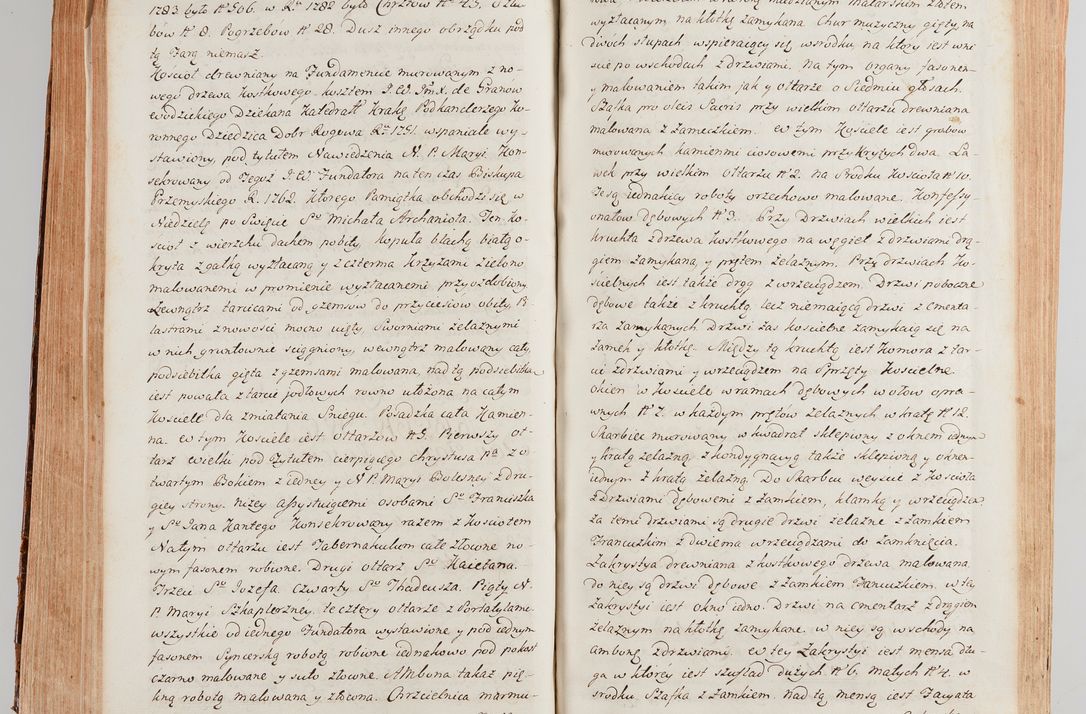 1783 było N° 906. w Ru 1782 było Chrztów N° 43. Szlu-
bów N° 8. Pogrzebow N° 28. Dusz innego obrządku pod
tą Farą niemasz.
Kościoł drewniany na Fundamencie murowanym z no-
wego drzewa kostkowego, kosztem J. W. Jmx. de Granow
Wodzickiego Dziekana Katedral: Krakg Podkanclerzego Ko-
ronnego Dziedzica Dobr Rogowa Ru 1751. wspaniale wy-
stawiony, pod tytułem Nawiedzenia N. P. Maryi Kon-
sekrowany od Tegoż J. W. Fundatora na ten czas Biskupa
Przemyskiego R. 1762. Ktorego Pamiątka obchodzi się w
Niedzielę po Swięcie So Michała Archanioła. Ten Ko-
ścioł z wierzchu dachem pobity, kopuła blachą białą o-
kryta z gałką wyzłacaną y z czterma krzyżami zielono
malowanemi w promienie wyzłacanemi przyozdobiony
Wewnątrz tarcicami od gzemsow do przyciesiow obity, Pi-
lastrami z nowości mocno uięty, Sworniami żelaznymi
w nich gruntownie sciągniony, wewnątrz malowany cały,
podsiebitka gięta z gzemsami malowana, nad tą podsiebitką
iest powała z tarcic jodłowych rowno ułożona na całym
Kościele dla zmiatania Sniegu. Posadzka cała Kamien-
na. W tym Kościele iest ołtarzow N° 5. Pierwszy oł-
tarz wielki pod Tytułem cierpiącego Chrystusa Pa z o-
twartym Bokiem z iedney y N. P. Maryi Bolesney z dru-
giey strony. niżey assystuiącemi osobami So Franciszka
y So Jana Kantego Konsekrowany razem z Kościołem
Na tym ołtarzu iest Tabernakulum całe złocone no-
wym fasonem robione. Drugi ołtarz So Kaietana.
Trzeci So Jozefa. Czwarty So Thadeusza. Piąty N.
P. Maryi Szkaplerzney. te cztery ołtarze z Portatylami.
wszystkie od iednego Fundatora wystawione y pod iednym
fasonem Sznycerską robotą robione iednakowo pod pokost
czarno malowane y suto złocone. Ambona takaż pię-
kną robotą malowana y złocona. Chrzcielnica marmu-
wyzłacanym na kłotkę zamykana. Chur muzyczny gięty na
dwóch słupach wspieraiący się w srodku, na ktory iest wni-
scie po wschodach z drzwiami. Na tym organy fasonem
y malowaniem takim jak y ołtarze o Siedmiu głosach.
Szafka pro oleis Sacris przy wielkim ołtarzu drewniana
malowana z zameczkiem. W tym Kościele iest grobow
murowanych kamieńmi ciosowemi przykrytych dwa. Ła-
wek przy wielkim ołtarzu N° 2. na Srodku Kościoła N° 10.
Te są iednakiey roboty orzechowo malowane. Konfessy-
onałow dębowych N° 3. Przy Drzwiach wielkich iest
kruchta z drzewa kostkowego na węgieł z drzwiami drą-
giem zamykaną, y prętem żelaznym. Przy drzwiach Ko-
ścielnych iest także drąg z wrzeciądzem. Drzwi poboczne
dębowe także z kruchtą, lecz niemaiącą drzwi z cmenta-
rza zamykanych. Drzwi zas kościelne zamykaią się na
zamek y kłotkę. Między tą kruchtą iest komora z tar-
cic z drzwiami y wrzeciądzem na Sprzęty Kościelne
okien w Kościele w ramach dębowych w ołow opra-
wnych N° 7. w każdym prętow żelaznych w kratę N° 12.
Skarbiec murowany w kwadrat sklepiony z oknem iednym
y kratą żelazną, z kondygnacyą także sklepioną y oknem
iednym z kratą żelazną. Do Skarbcu weyscie z Kościoła
z Drzwiami dębowemi z zamkiem, klamką y wrzeciądzem.
za temi drzwiami są drugie drzwi żelazne z zamkiem
Francuzkim z dwiema wrzeciądzami do zamknięcia.
Zakrystya drewniana z kostkowego drzewa malowana.
do niey są drzwi dębowe z zamkiem Francuzkim. w tey
Zakrystyi iest okno iedno. Drzwi na cmentarz z drągiem
żelaznym na kłotkę zamykane. w niey są wschody na
ambonę z drzwiami. W tey Zakrystyi iest mensa dłu-
ga w ktorey iest szuflad dużych N° 6. małych N° 4. w
srodku. Szafka z zamkiem. nad tą mensą iest Facyata